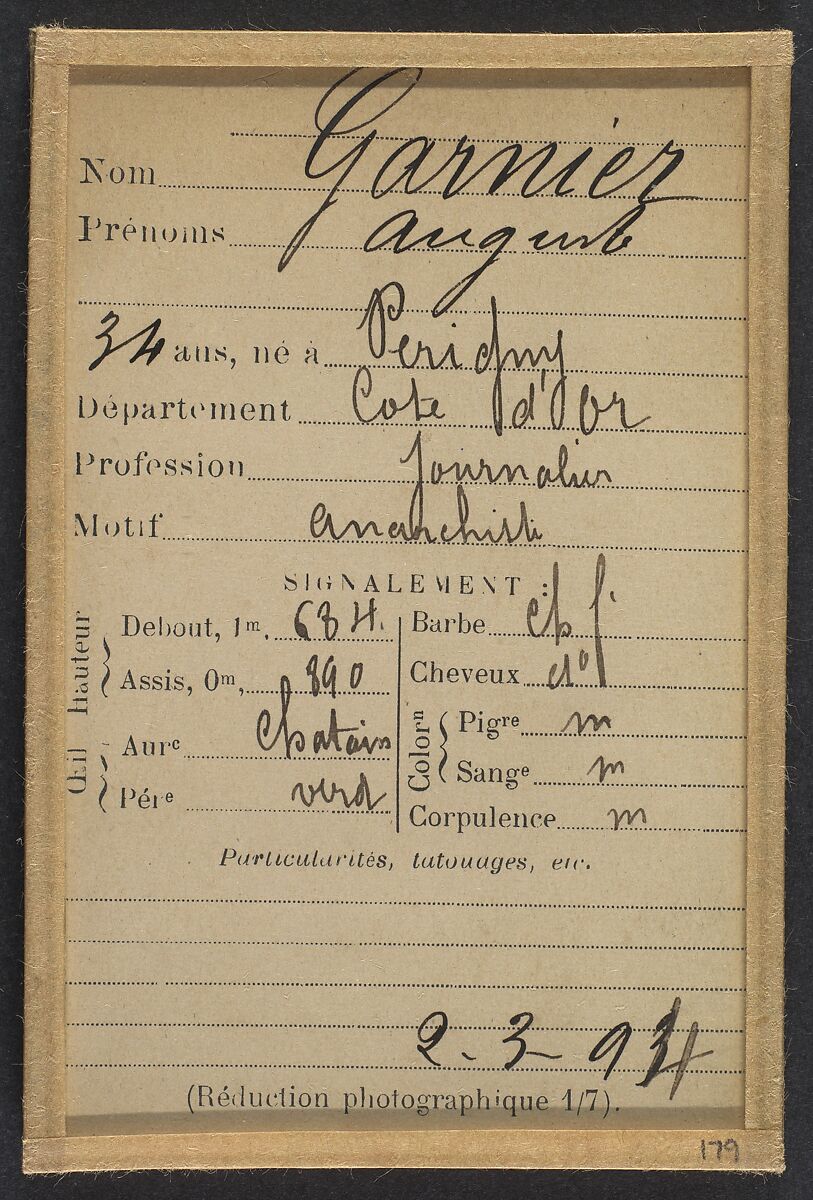 Nom Garnier
Prénoms Auguste
34 ans, né à Perigny
Département Cote d'Or
Profession Journalier
Motif Anarchiste
SIGNALEMENT :
Hauteur
Debout, 1m. 684.
Assis, 0m, 890
Œil
Aurᵉ Chatain
Pérᵉ verd
Barbe ch f.
Cheveux dº
Colorⁿ
Pigrᵉ m
Sangᵉ m
Corpulence m
Particularités, tatouages, etc.
2-3-94
(Réduction photographique 1/7).
179